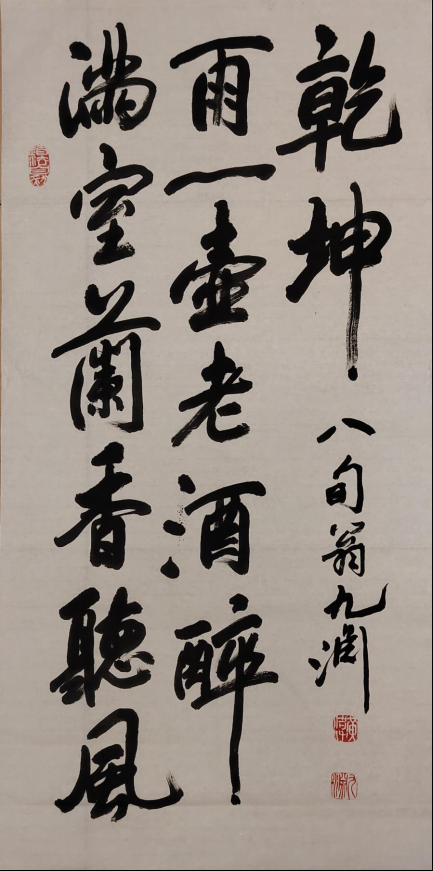 滿室蘭香聽風
雨一壺老酒醉
乾坤
八旬翁九渕